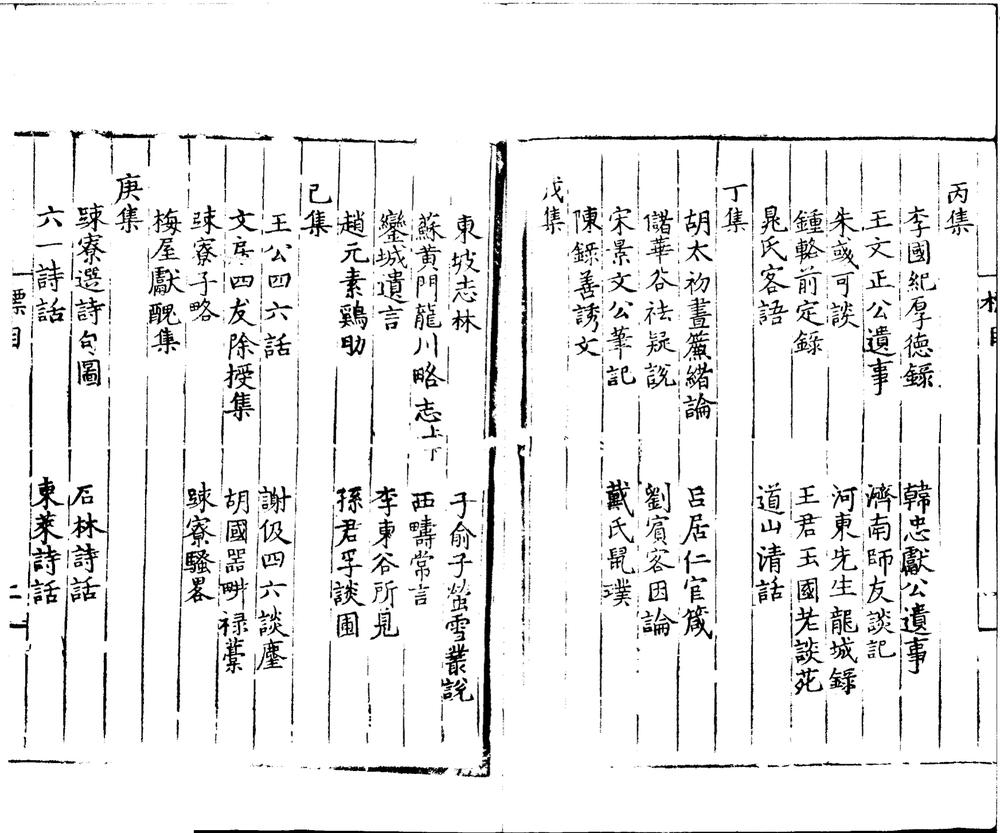 丙集
李國紀厚德錄 韓忠獻公遺事
王文正公遺事 濟南師友談記
朱彧可談 河東先生龍城錄
鍾輅前定錄 王君玉國老談苑
晁氏客語 道山清話
丁集
胡太初晝簾緒論 吕居仁官箴
儲華谷祛疑說 劉賓客因論
宋景文公筆記 戴氏鼠璞
陳錄善誘文
戊集
東坡志林 子俞子螢雪叢說
蘇黄門龍川略志上下 西疇常言
欒城遺言 李東谷所見
趙元素鷄肋 孫君孚談圃
己集
王公四六話 謝伋四六談麈
文房四友除授集 胡國器畊禄藳
踈寮子略 踈寮騷畧
梅屋獻醜集
庚集
踈寮選詩句圖 石林詩話
六一詩話 東萊詩話
標目
二